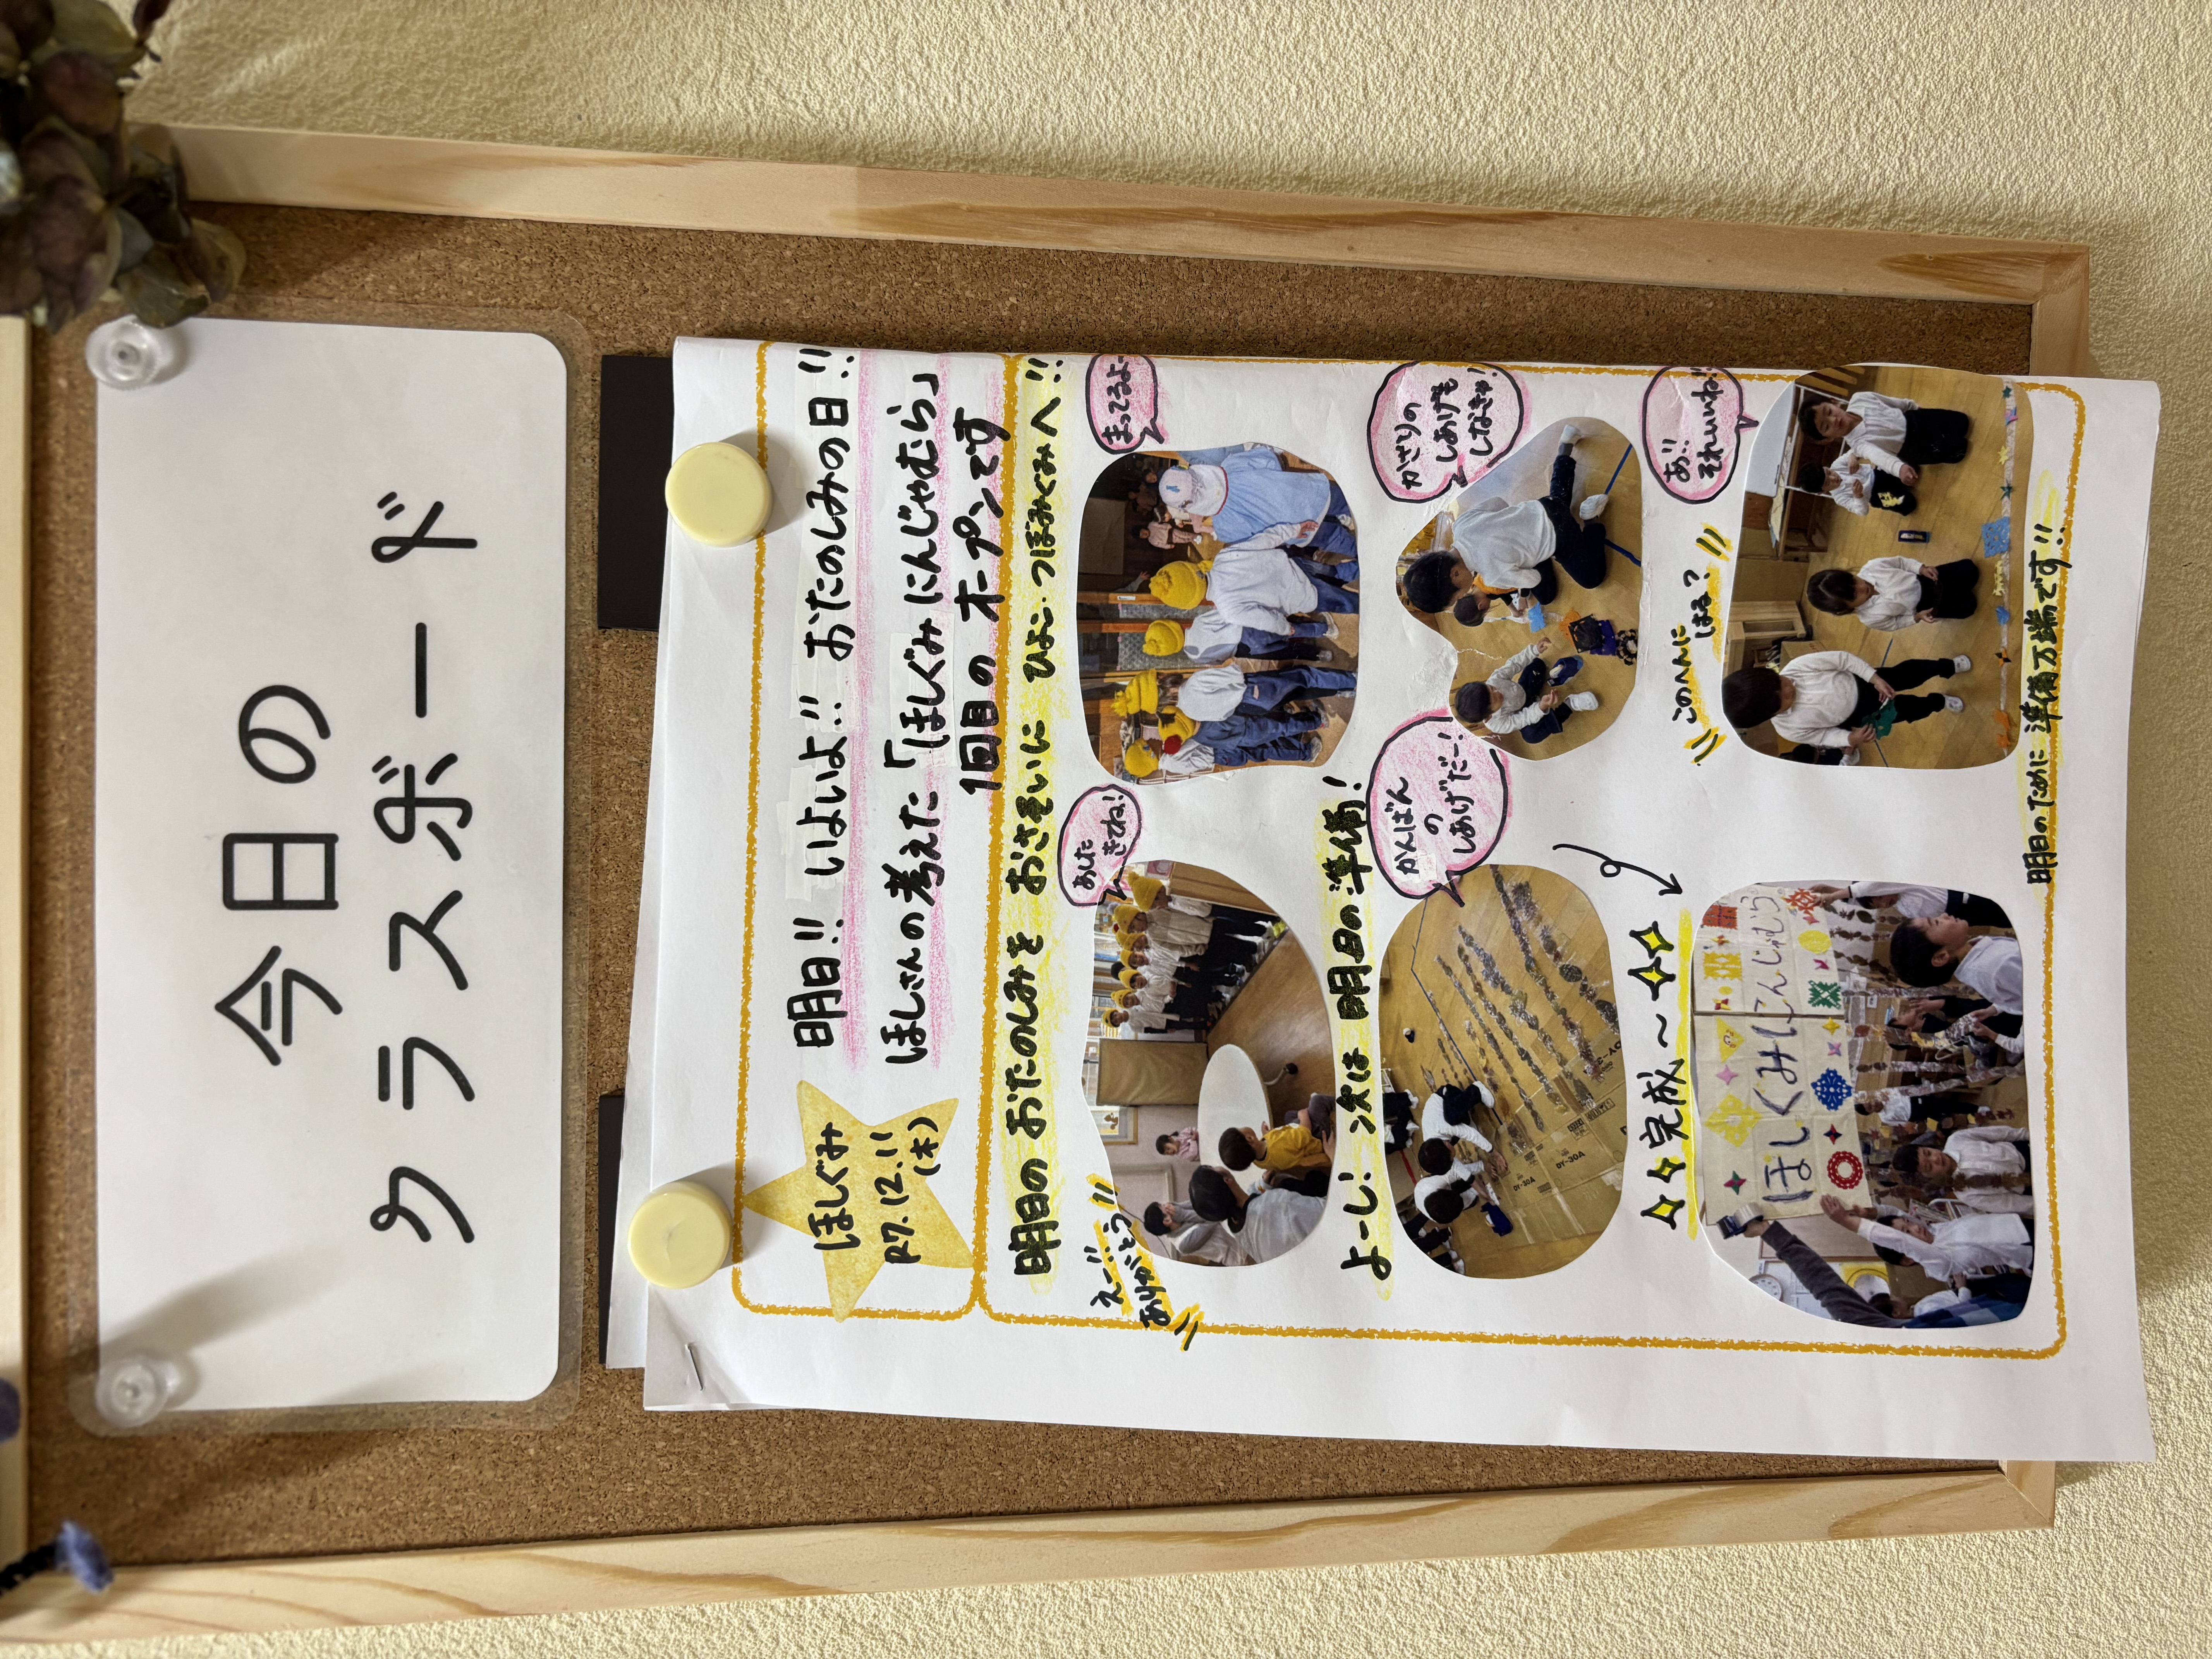 今日の
クラスボード
ほしぐみ
R7.12.11
(木)
明日!! いよいよ!! おたのしみの日!!
ほしさんの考えた「ほしぐみにんじゃむら」
1回目のオープンです
明日の おたのしみを おさそいに ひよこ・つぼみぐみへ!!
えー!!
ありがとう
あした
きてね!
まってるよー
よーし! 次は 明日の準備!
かんばん
の
しあげだー!
かざりの
しあげも
しなきゃ!
DY-30A
DY-30A
完成〜
このへんに
はる?
あ!!
それいいね!!
ほしぐみにんじゃむら
明日のために 準備万端です!!